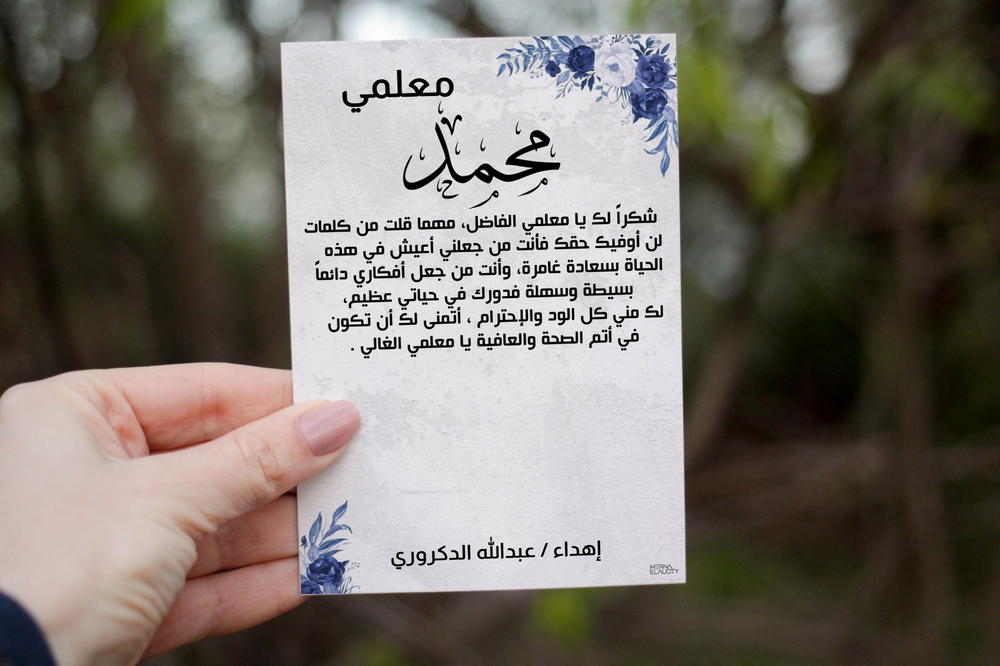 معلمي
محمد
شكراً لك يا معلمي الفاضل، مهما قلت من كلمات
لن أوفيك حقك فأنت من جعلني أعيش في هذه
الحياة بسعادة غامرة، وأنت من جعل أفكاري دائماً
بسيطة وسهلة فدورك في حياتي عظيم،
لك مني كل الود والإحترام ، أتمنى لك أن تكون
في أتم الصحة والعافية يا معلمي الغالي .
إهداء / عبدالله الدكروري
MERNA
ELAUOTY